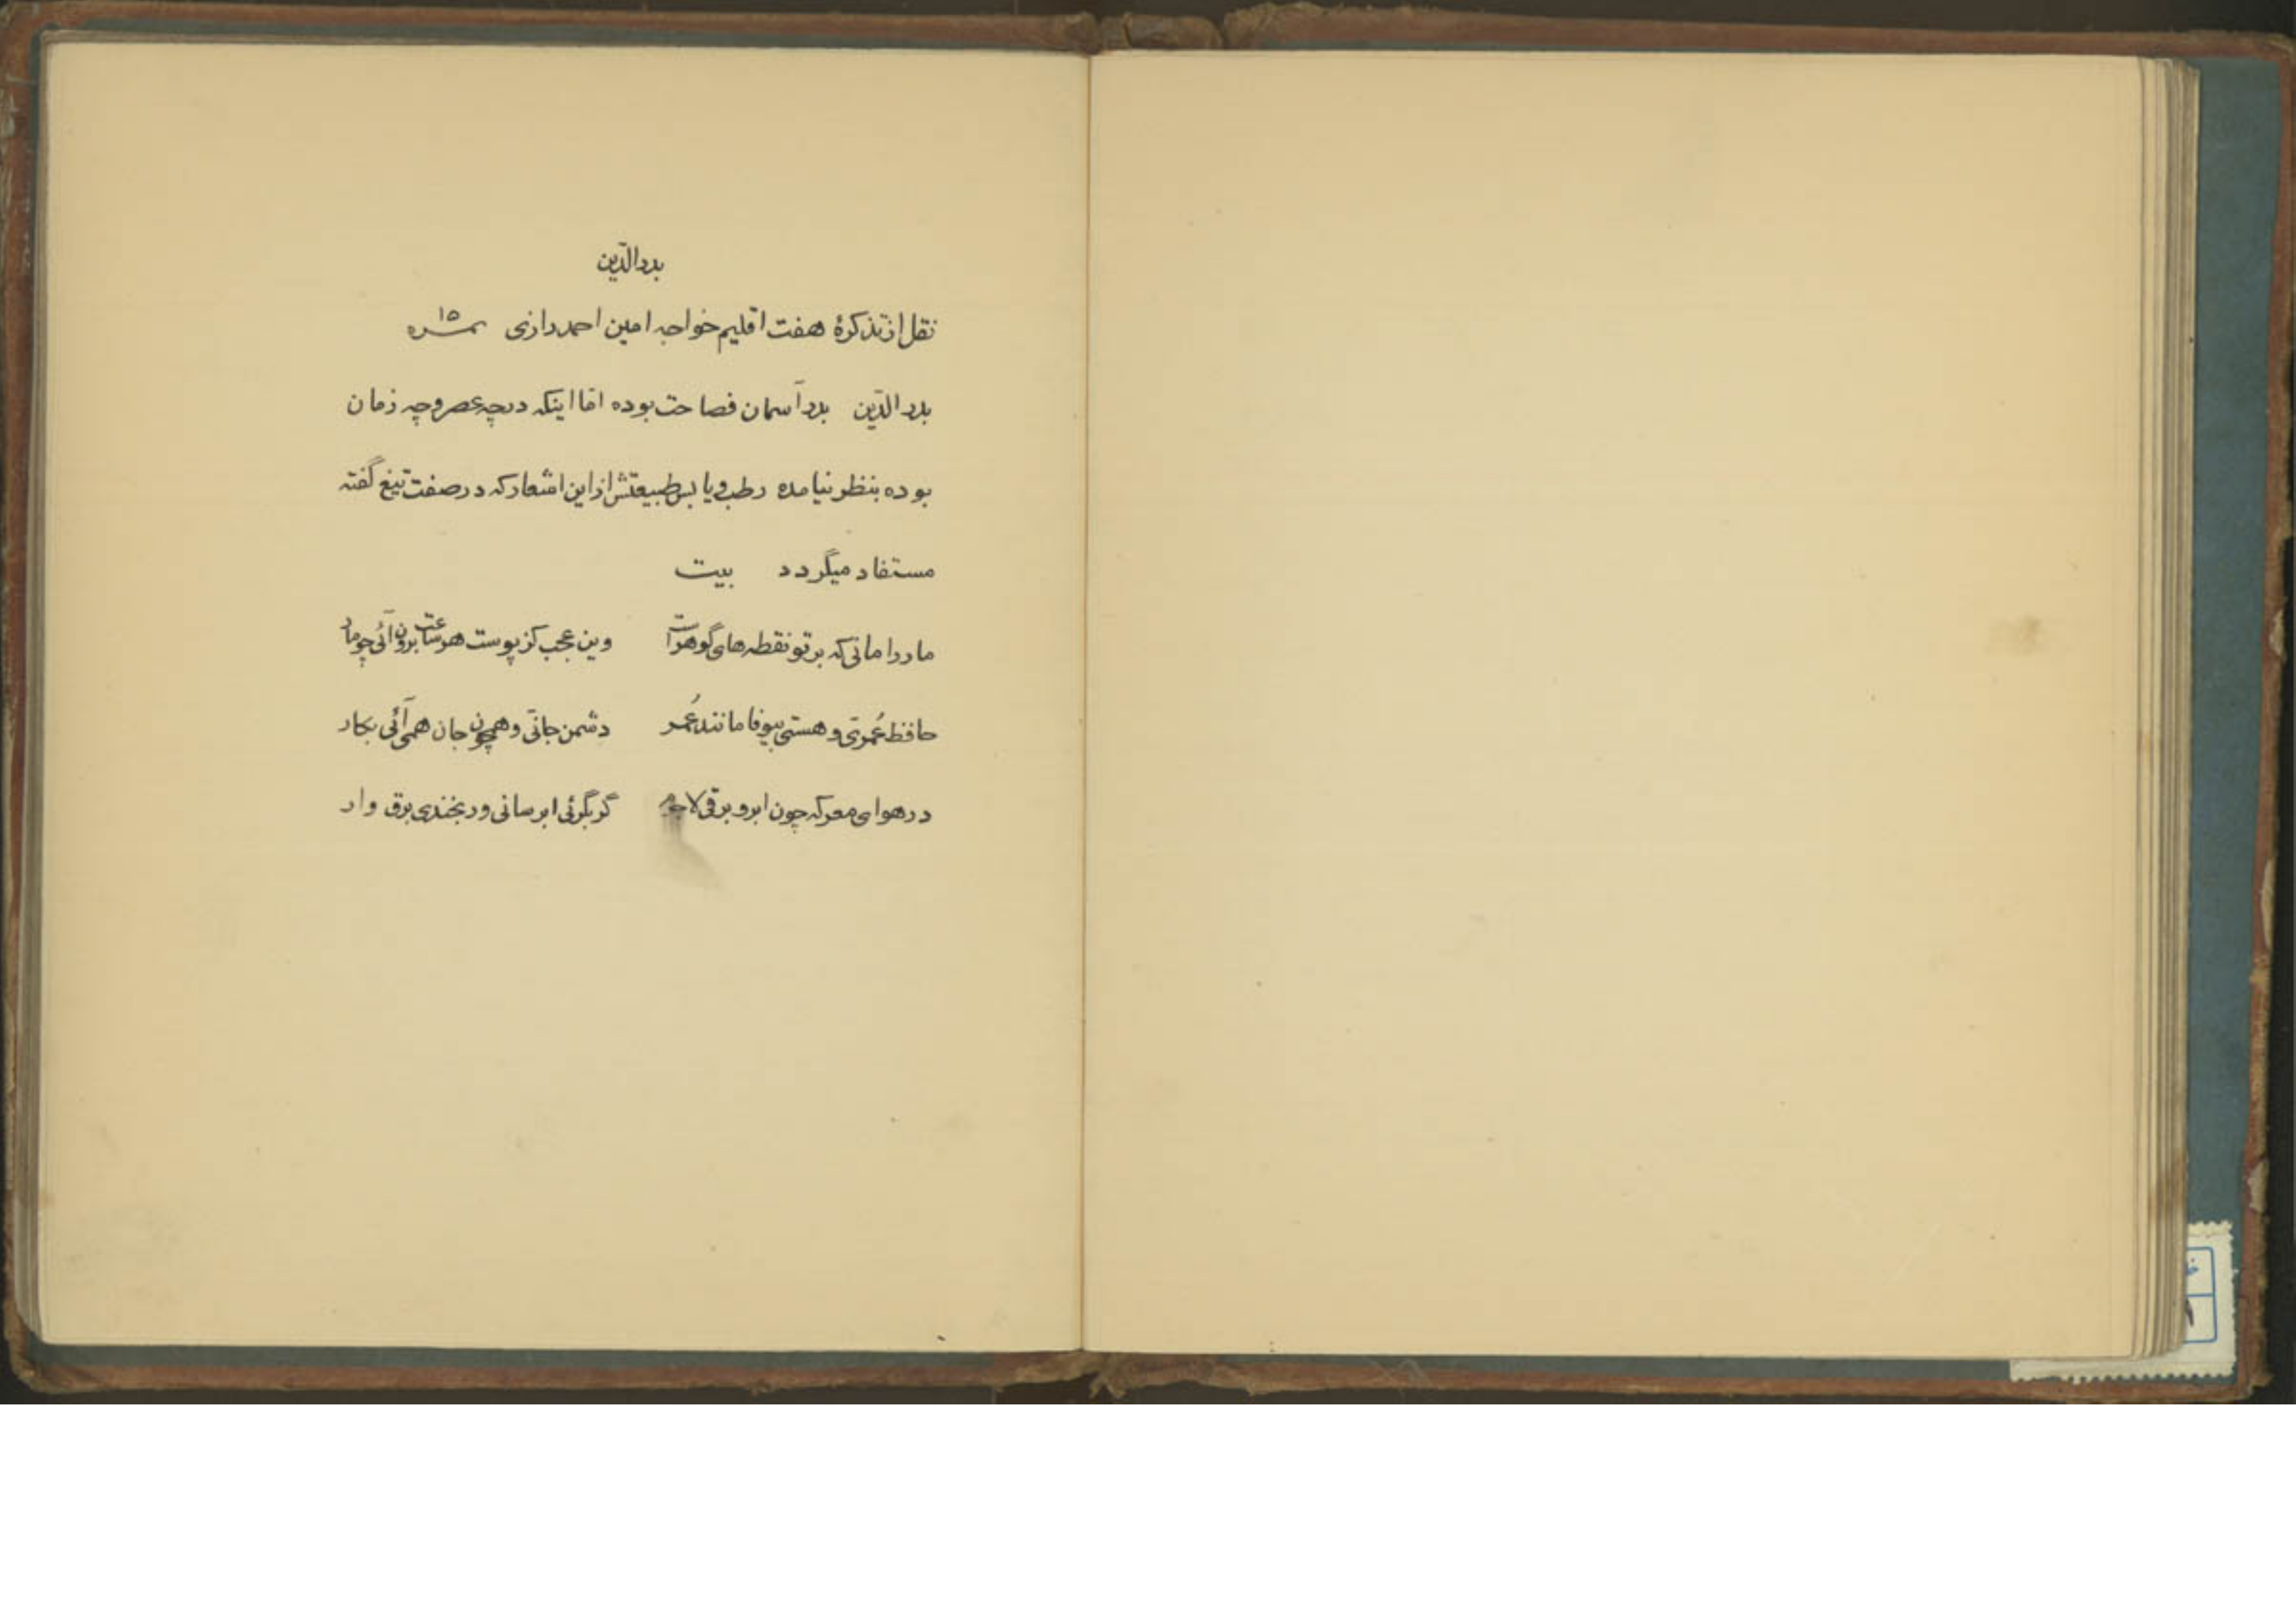 بدرالدّین
نقل از تذکرهٔ هفت اقلیم خواجه امین احمد رازی نمره ۱۵
بدرالدّین بدر آسمان فصاحت بوده امّا اینکه درچه عصر و چه زمان
بوده بنظر نیامده رطب و یابس طبیعتش از این اشعار که در صفت تیغ گفته
مستفاد میگردد بیت
مار را مانی که بر تو نقطه های گوهر است وین عجب کز پوست هر ساعت برون آئی چو مار
حافظ عُمرتی و هستی بیوفا مانند عُمر دشمن جانّی و همچون جان همی آئی بکار
در هوای معرکه چون ابر و برقی لاجرم گر بگرئی ابر سانی ور بخندی برق وار